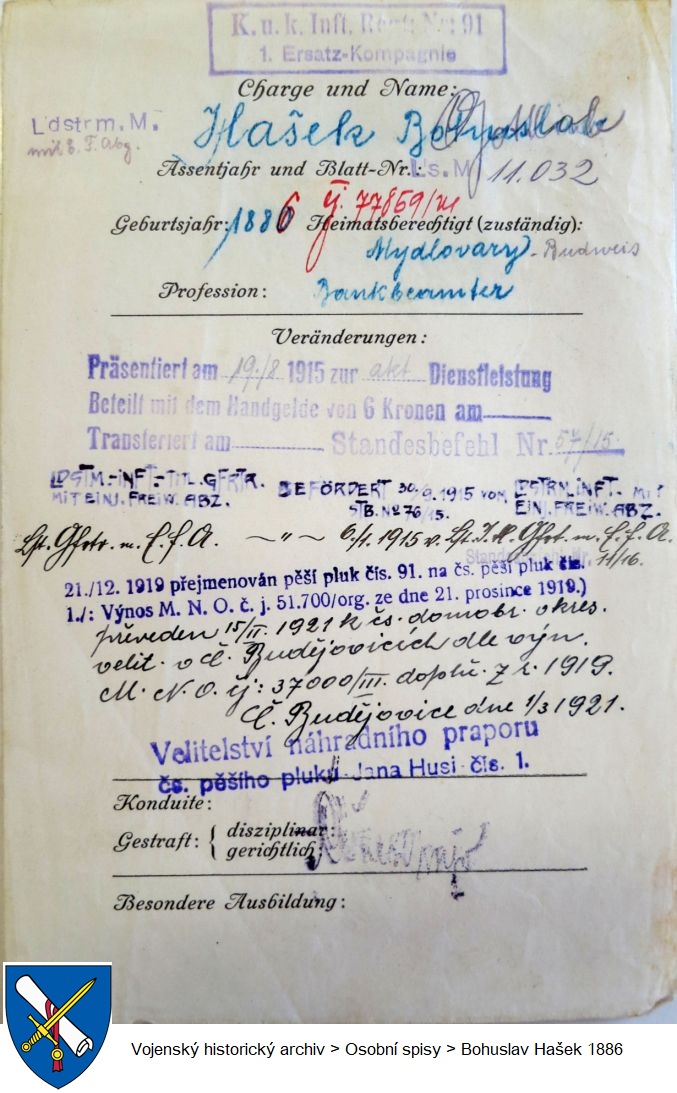 K. u. k. Inft. Regt. Nr. 91
1. Ersatz-Kompagnie
Charge und Name:
Ldstrm. M.
mit E. F. Abz.
Hašek Bohuslav
Assentjahr und Blatt-Nr.: Ls. M 11.032
čj. 77859/
Geburtsjahr: 1886 Heimatsberechtigt (zuständig):
Mydlovary - Budweis
Profession: Bankbeamter
Veränderungen:
Präsentiert am 19./8 1915 zur akt Dienstleistung
Beteilt mit dem Handgelde von 6 Kronen am
Transferiert am Standesbefehl Nr. 57/15.
LDSTM.-INFT.-TIT. GFRTR. BEFÖRDERT 30. 1915 VOM LDSTRM. INFT. MIT
MIT EINJ. FREIW. ABZ. STB. No 76/15. EINJ. FREIW. ABZ.
Lst. Gfrtr. m. E. F. A. —"— 6/1. 1915 v. Lst. I. tit. Gfrt. m. E. F. A.
11/16.
21./12. 1919 přejmenován pěší pluk čís. 91. na čs. pěší pluk čís.
1./: Výnos M. N. O. č. j. 51.700/org. ze dne 21. prosince 1919.)
převeden 15/II. 1921 k čs. domobr. okres.
velit. v Č. Budějovicích dle výn.
M. N. O. čj: 37000/III. doplň. z r. 1919.
Č. Budějovice dne 1/3 1921.
Velitelství náhradního praporu
čs. pěšího pluku Jana Husi čís. 1.
Konduite:
Gestraft: { disziplinar:
gerichtlich:
Besondere Ausbildung:
Vojenský historický archiv > Osobní spisy > Bohuslav Hašek 1886